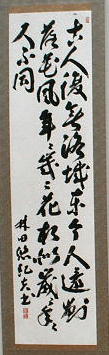 古人復無洛城東今人還對
落花風年々歳々花相似歳々年々
人不同
林田悠紀夫書